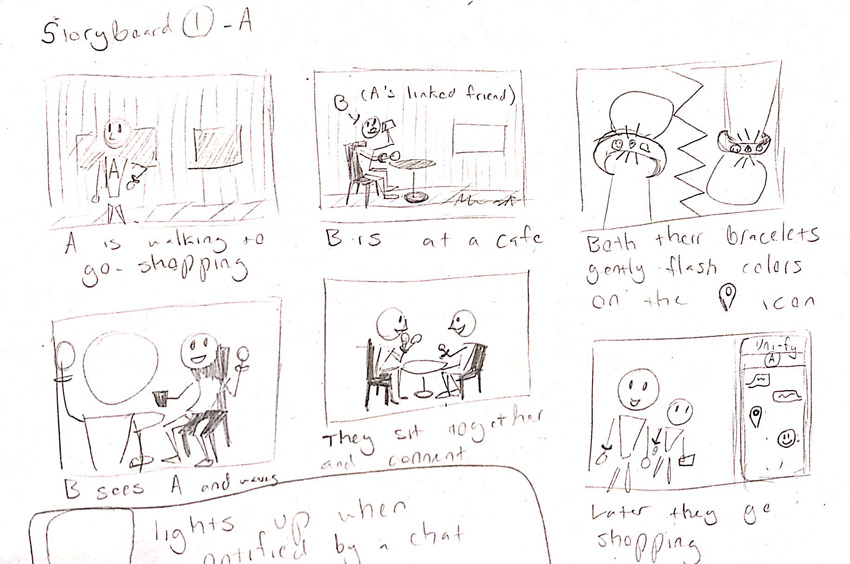 Storyboard 1 - A
A
A is walking to
go shopping
B (A's linked friend)
B is at a cafe
Both their bracelets
gently flash colors
on the icon
B sees A and waves
They sit together
and connect
Uni-fy
A
Later they go
shopping
lights up when
notified by a chat